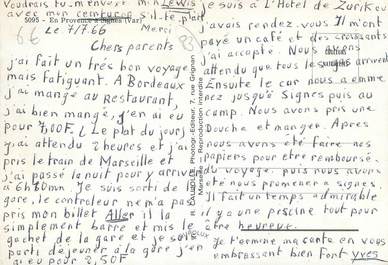 Voudrais tu m'envoier mon LEWIS
avec mon ceinturon s'il te plait
5095 - En Provence - Signes (Var)
Merci
66 Le 7/7.66
83
Chers parents
j'ai fait un très bon voyage
mais fatiguant. A Bordeaux
j'ai mangé au Restaurant,
j'ai bien mangé, j'en ai eu
pour 700F. (Le plat du jour)
y ai attendu 2 heures et j'ai
pris le train de Marseille et
j'ai passé la nuit pour y arriver
à 6H20mn. Je suis sorti de la
gare, le controleur ne m'a pas
pris mon billet Aller il l'a
simplement barré et mis le
cachet de la gare et je suis
parti déjeuner à la gare j'en
ai eu pour 2,50F
R. CANDOLLE, Photogr.-Editeur, 7, rue Grignan
Marseille - Reproduction interdite
je suis à l'Hotel de Zurik ou
j'avais rendez-vous Il m'ont
payé un café et des croissants
j'ai accepté. Nous avons
attendu que tous les arrivent
Ensuite le car nous a emme
nez jusqu'à Signes puis au
camp. Nous avons pris une
Douche et manger. Apres
nous avons été faire nos
papiers pour être remboursé.
du voyage, puis nous avons
été nous promener à signes.
Il fait un temps admirable
il y a une piscine tout pour
être heureux.
Je termine ma carte en vous
embrassant bien Font yves